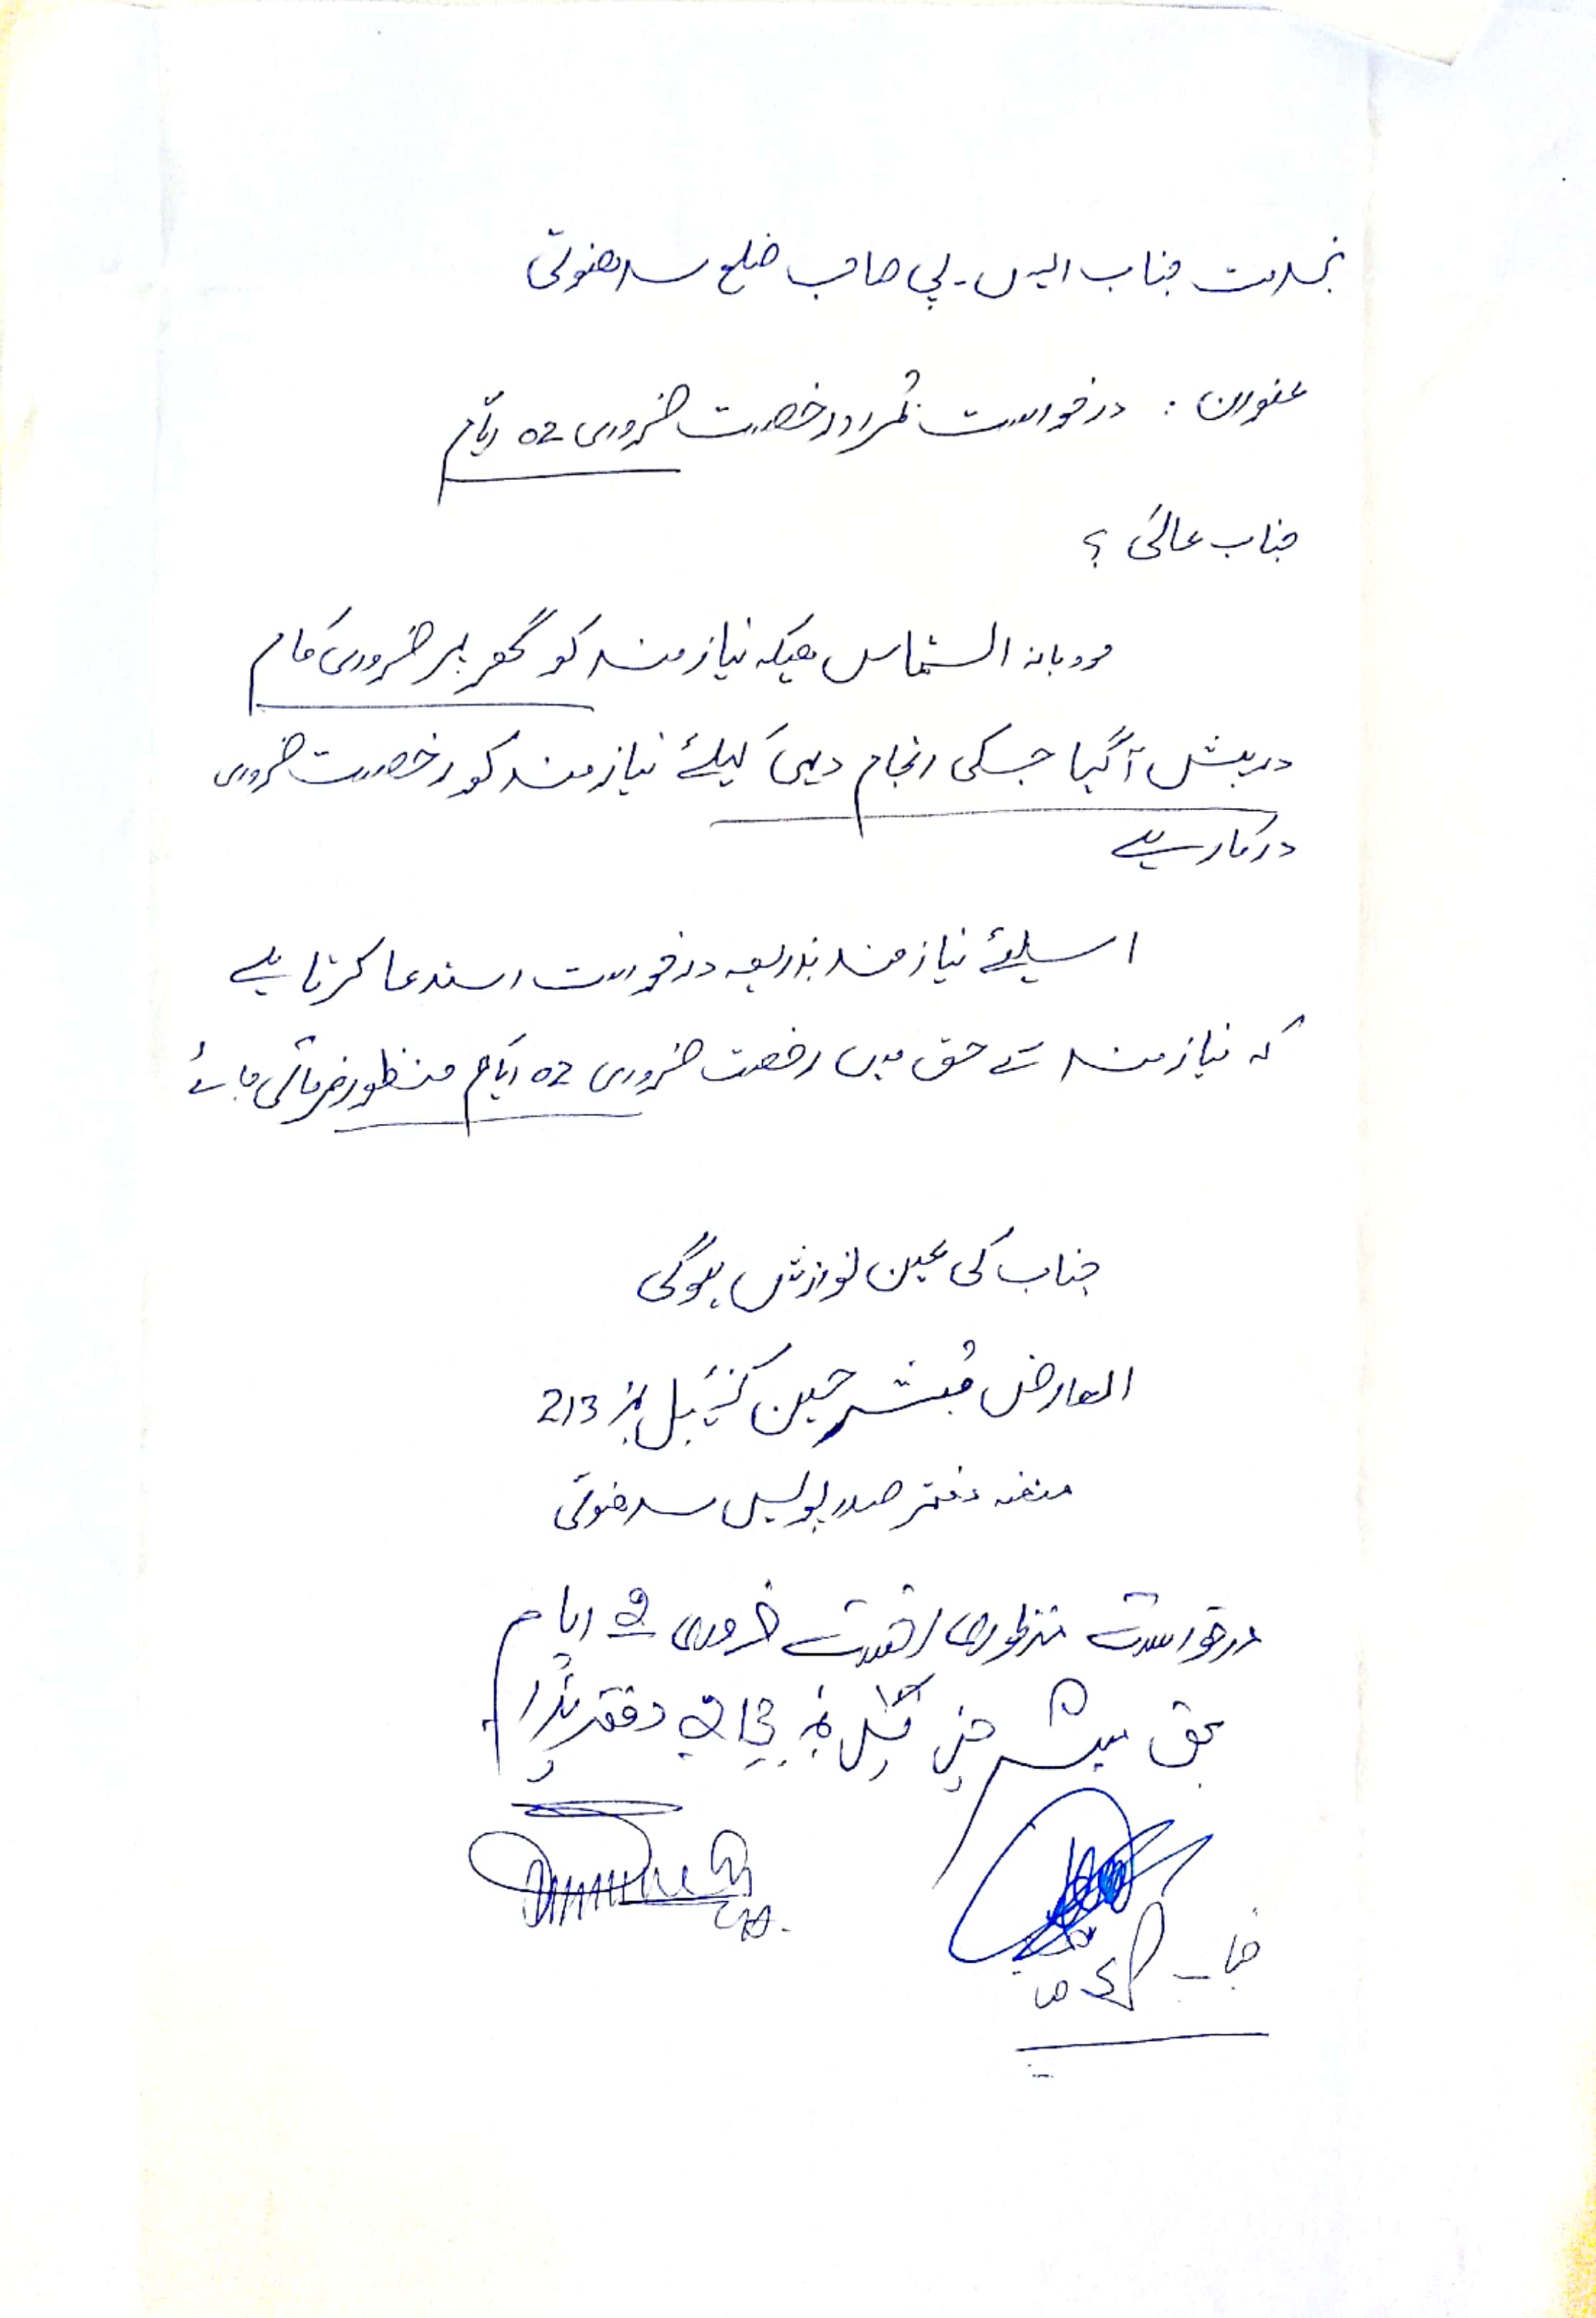 بخدمت جناب ایس۔پی صاحب ضلع سدھنوتی
عنوان : درخواست بمراد رخصت ضروری 02 ایام
جناب عالی ؟
مودبانہ التماس ہیکہ نیازمند کو گھر پر ضروری کام
درپیش آگیا جسکی انجام دہی کیلئے نیازمند کو رخصت ضروری
درکار ہے
اسلئے نیازمند بذریعہ درخواست استدعا کرتا ہے
کہ نیازمند کے حق میں رخصت ضروری 02 ایام منظور فرمائی جائے
جناب کی عین نوازش ہوگی
العارض مبشر حسین کنسٹیبل نمبر 213
متعینہ دفتر صدر پولیس سدھنوتی
درخواست منظوری رخصت ضروری 2 ایام
بحق مبشر حسین کنسٹیبل نمبر 213 دفتر ہذا
جناب